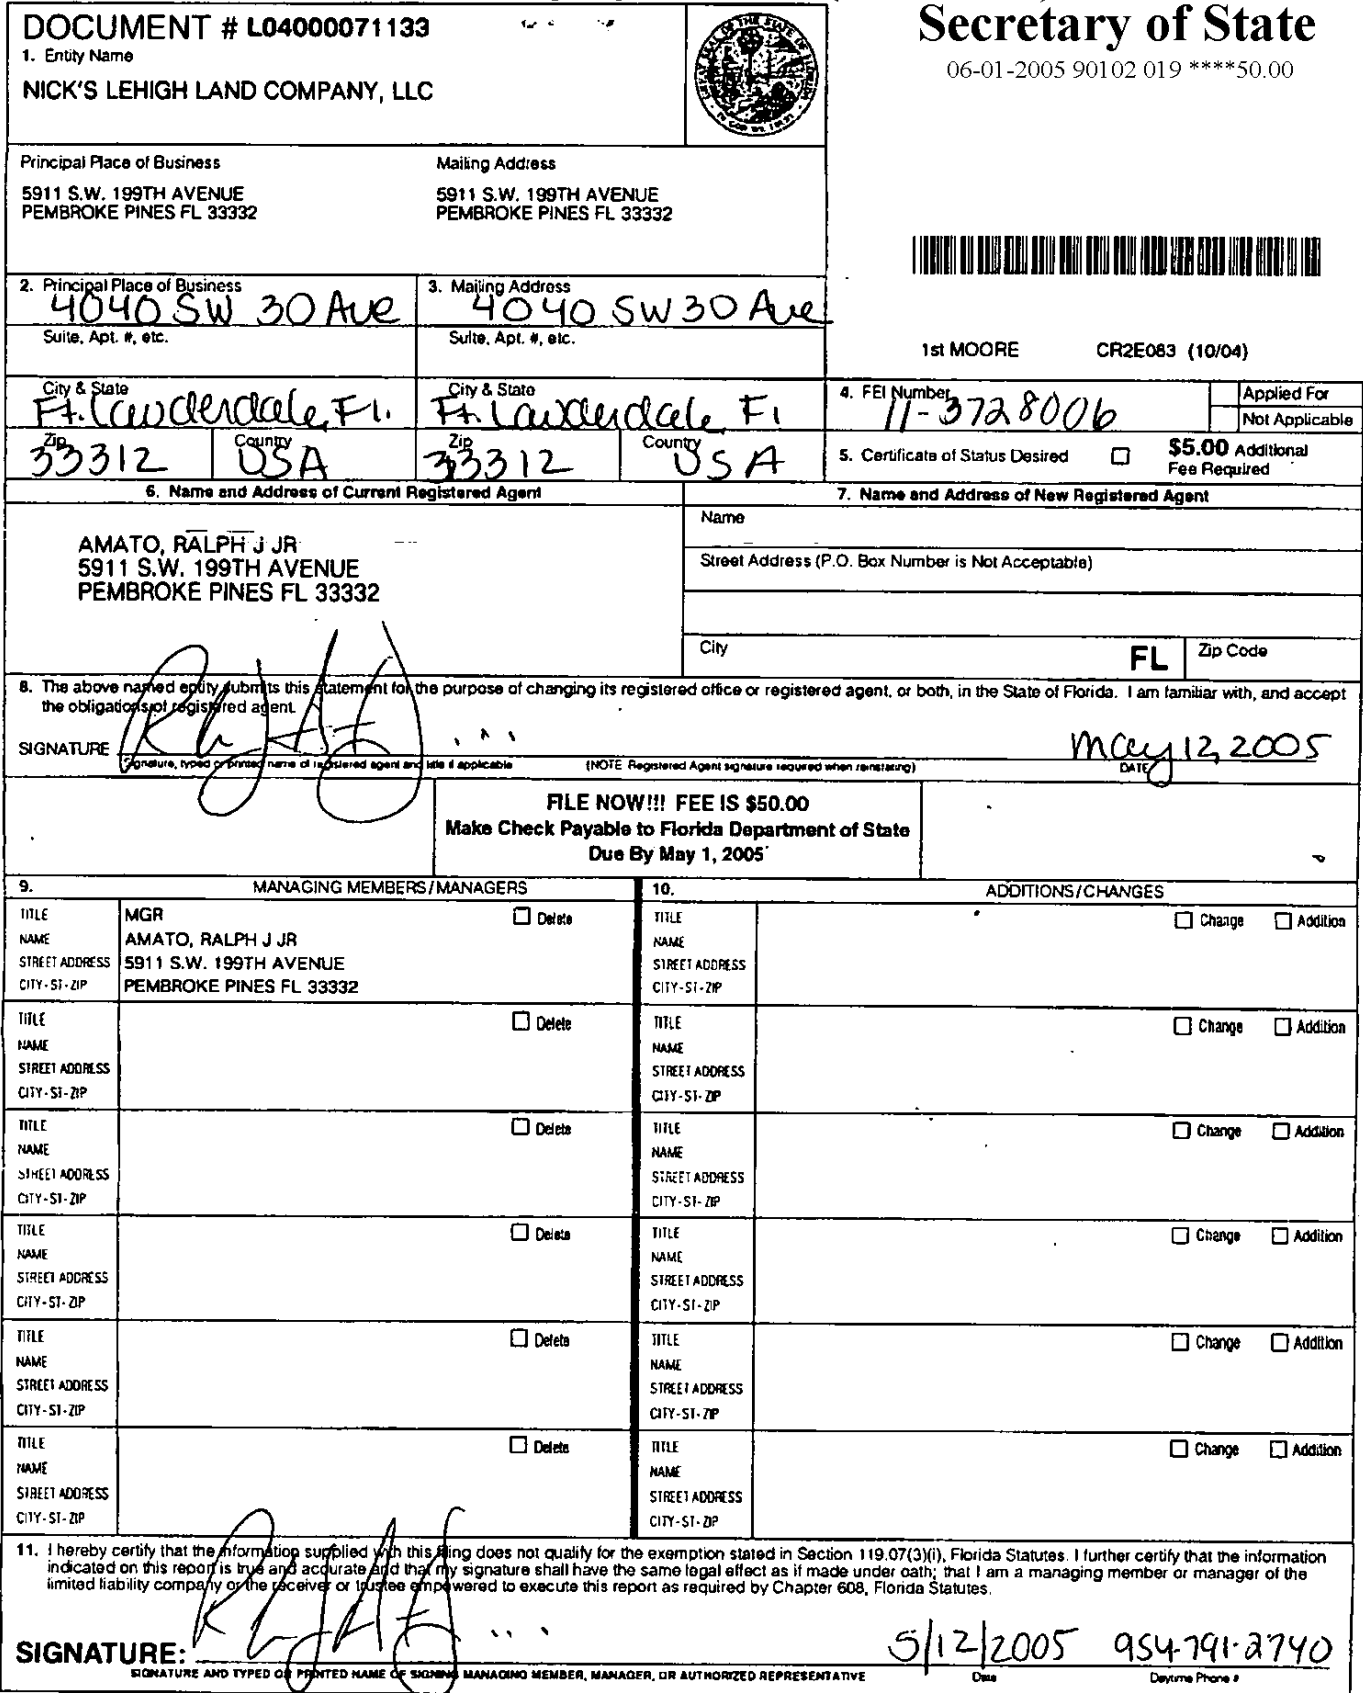 DOCUMENT # L04000071133
1. Entity Name
NICK'S LEHIGH LAND COMPANY, LLC
Secretary of State
06-01-2005 90102 019 ****50.00
Principal Place of Business
5911 S.W. 199TH AVENUE
PEMBROKE PINES FL 33332
Mailing Address
5911 S.W. 199TH AVENUE
PEMBROKE PINES FL 33332
2. Principal Place of Business
4040 SW 30 Ave
3. Mailing Address
4040 SW 30 Ave
Suite, Apt. #, etc.
Suite, Apt. #, etc.
1st MOORE CR2E083 (10/04)
City & State
Ft. Lauderdale, Fl.
City & State
Ft. Lauderdale, Fl
4. FEI Number
11-3728006
Applied For
Not Applicable
Zip
33312
Country
USA
Zip
33312
Country
USA
5. Certificate of Status Desired
$5.00 Additional
Fee Required
6. Name and Address of Current Registered Agent
7. Name and Address of New Registered Agent
AMATO, RALPH J JR
5911 S.W. 199TH AVENUE
PEMBROKE PINES FL 33332
Name
Street Address (P.O. Box Number is Not Acceptable)
City
FL
Zip Code
8. The above named entity submits this statement for the purpose of changing its registered office or registered agent, or both, in the State of Florida. I am familiar with, and accept
the obligations of registered agent.
SIGNATURE
May 12, 2005
Signature, typed or printed name of registered agent and title if applicable
(NOTE Registered Agent signature required when reinstating)
DATE
FILE NOW!!! FEE IS $50.00
Make Check Payable to Florida Department of State
Due By May 1, 2005
9. MANAGING MEMBERS/MANAGERS
10. ADDITIONS/CHANGES
TITLE MGR Delete
NAME AMATO, RALPH J JR
STREET ADDRESS 5911 S.W. 199TH AVENUE
CITY-ST-ZIP PEMBROKE PINES FL 33332
TITLE Change Addition
NAME
STREET ADDRESS
CITY-ST-ZIP
TITLE Delete
NAME
STREET ADDRESS
CITY-ST-ZIP
TITLE Change Addition
NAME
STREET ADDRESS
CITY-ST-ZIP
TITLE Delete
NAME
STREET ADDRESS
CITY-ST-ZIP
TITLE Change Addition
NAME
STREET ADDRESS
CITY-ST-ZIP
TITLE Delete
NAME
STREET ADDRESS
CITY-ST-ZIP
TITLE Change Addition
NAME
STREET ADDRESS
CITY-ST-ZIP
TITLE Delete
NAME
STREET ADDRESS
CITY-ST-ZIP
TITLE Change Addition
NAME
STREET ADDRESS
CITY-ST-ZIP
TITLE Delete
NAME
STREET ADDRESS
CITY-ST-ZIP
TITLE Change Addition
NAME
STREET ADDRESS
CITY-ST-ZIP
11. I hereby certify that the information supplied with this filing does not qualify for the exemption stated in Section 119.07(3)(i), Florida Statutes. I further certify that the information
indicated on this report is true and accurate and that my signature shall have the same legal effect as if made under oath; that I am a managing member or manager of the
limited liability company or the receiver or trustee empowered to execute this report as required by Chapter 608, Florida Statutes.
SIGNATURE:
5/12/2005 954-791-2740
SIGNATURE AND TYPED OR PRINTED NAME OF SIGNING MANAGING MEMBER, MANAGER, OR AUTHORIZED REPRESENTATIVE
Date
Daytime Phone #